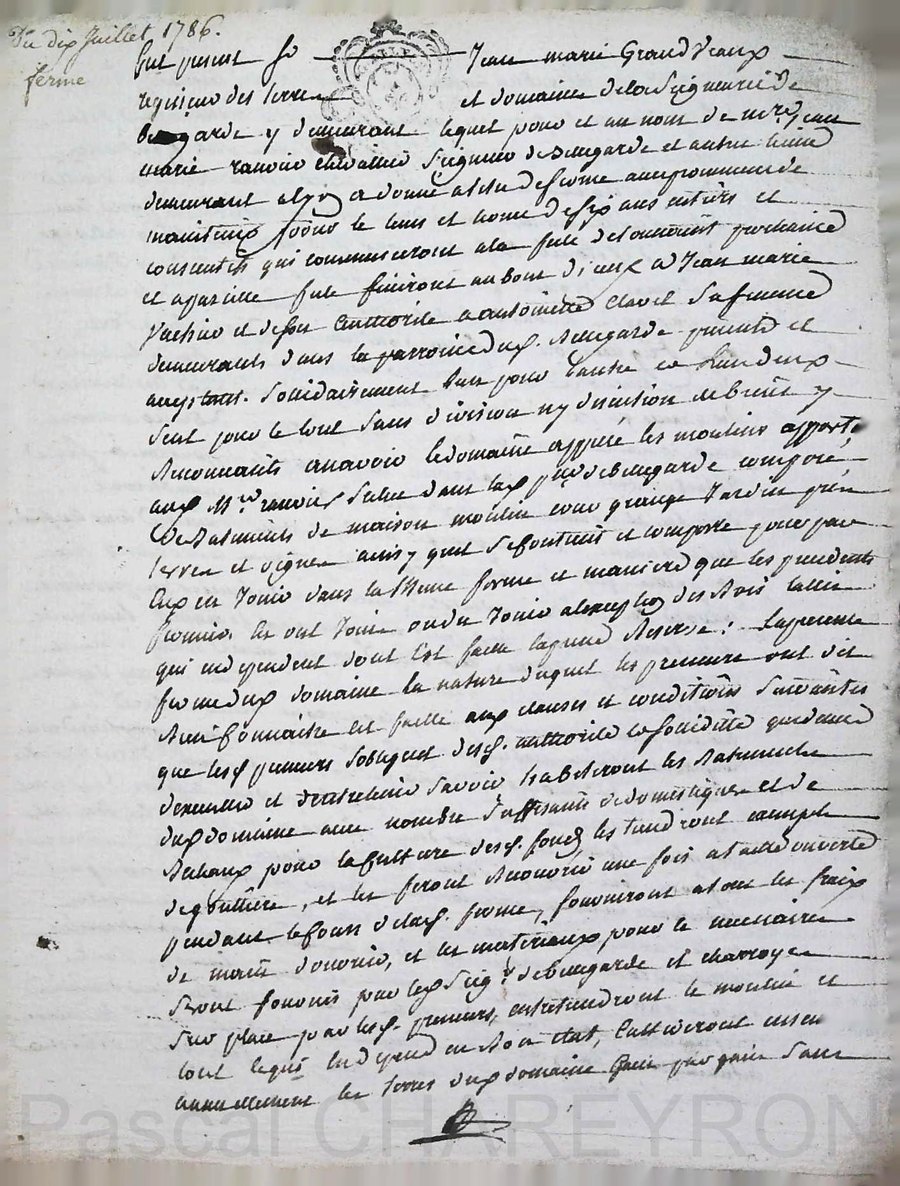 Du dix Juillet 1786.
ferme
fut present Sr Jean marie Grandveaux
regisseur des terres et domaines de la Seigneurie de
beauregarde y demeurant lequel pour et au nom de mre Jean
marie ranvier chevallier Seigneur de Bellegarde et autres lieux
demeurant a lyon a donné a titre de ferme avec promesse de
maintenir pour le tems et terme de six ans entiers et
consecutifs qui commenceront a la fete de toussaint prochaine
et a pareille fete finiront au bout d'iceux a Jean marie
Vachier et de son authorité a antoinette clavel sa femme
demeurants dans la parroisse dud. Bellegarde presents et
acceptants Solidairement l'un pour l'autre et l'un d'eux
Seul pour le tout Sans division ny discution de biens y
Renonceants a Savoir le domaine appellé les moulins appart.
aud. Mre ranvier Situé dans lad. psse de Bellegarde composé
De Batiments de maison moulin cour grange Jardin prés
terres et vignes ainsy quil Se contient et comporte pour par
Eux en Jouir dans la Meme forme et maniere que les precedents
fermiers en ont Joui ou du Jouir a l'exception des Bois taillis
qui en dependent dont est faitte Expresse Reserve: la presente
ferme dud. domaine la nature duquel les preneurs ont dit
Bien Connaitre est faitte aux clauses et conditions Suivantes
que lesd. preneurs Sobligent desd. authorité et Soliditté que dessus
d'executer et d'entretenir Savoir habiteront les Batiments
dud. domaine avec nombre Suffisants de domestiques et de
Bestiaux pour la Culture desd. fonds les tiendront exempts
de gouttiere, et les feront Recouvrir une fois a taille ouverte
pendant le Cours de lad. ferme, fourniront a tous les fraix
de main d'ouvrier, et les materiaux pour ce necessaires
Seront fournis par led. Seigr de Bellegarde et charroyes
Sur place par lesd. preneurs, entretiendront le moulin et
tout ce qui en depend en Bon etat, Cultiveront
annuellement les terres dud. domaine Sans
Pascal CHAREYRON